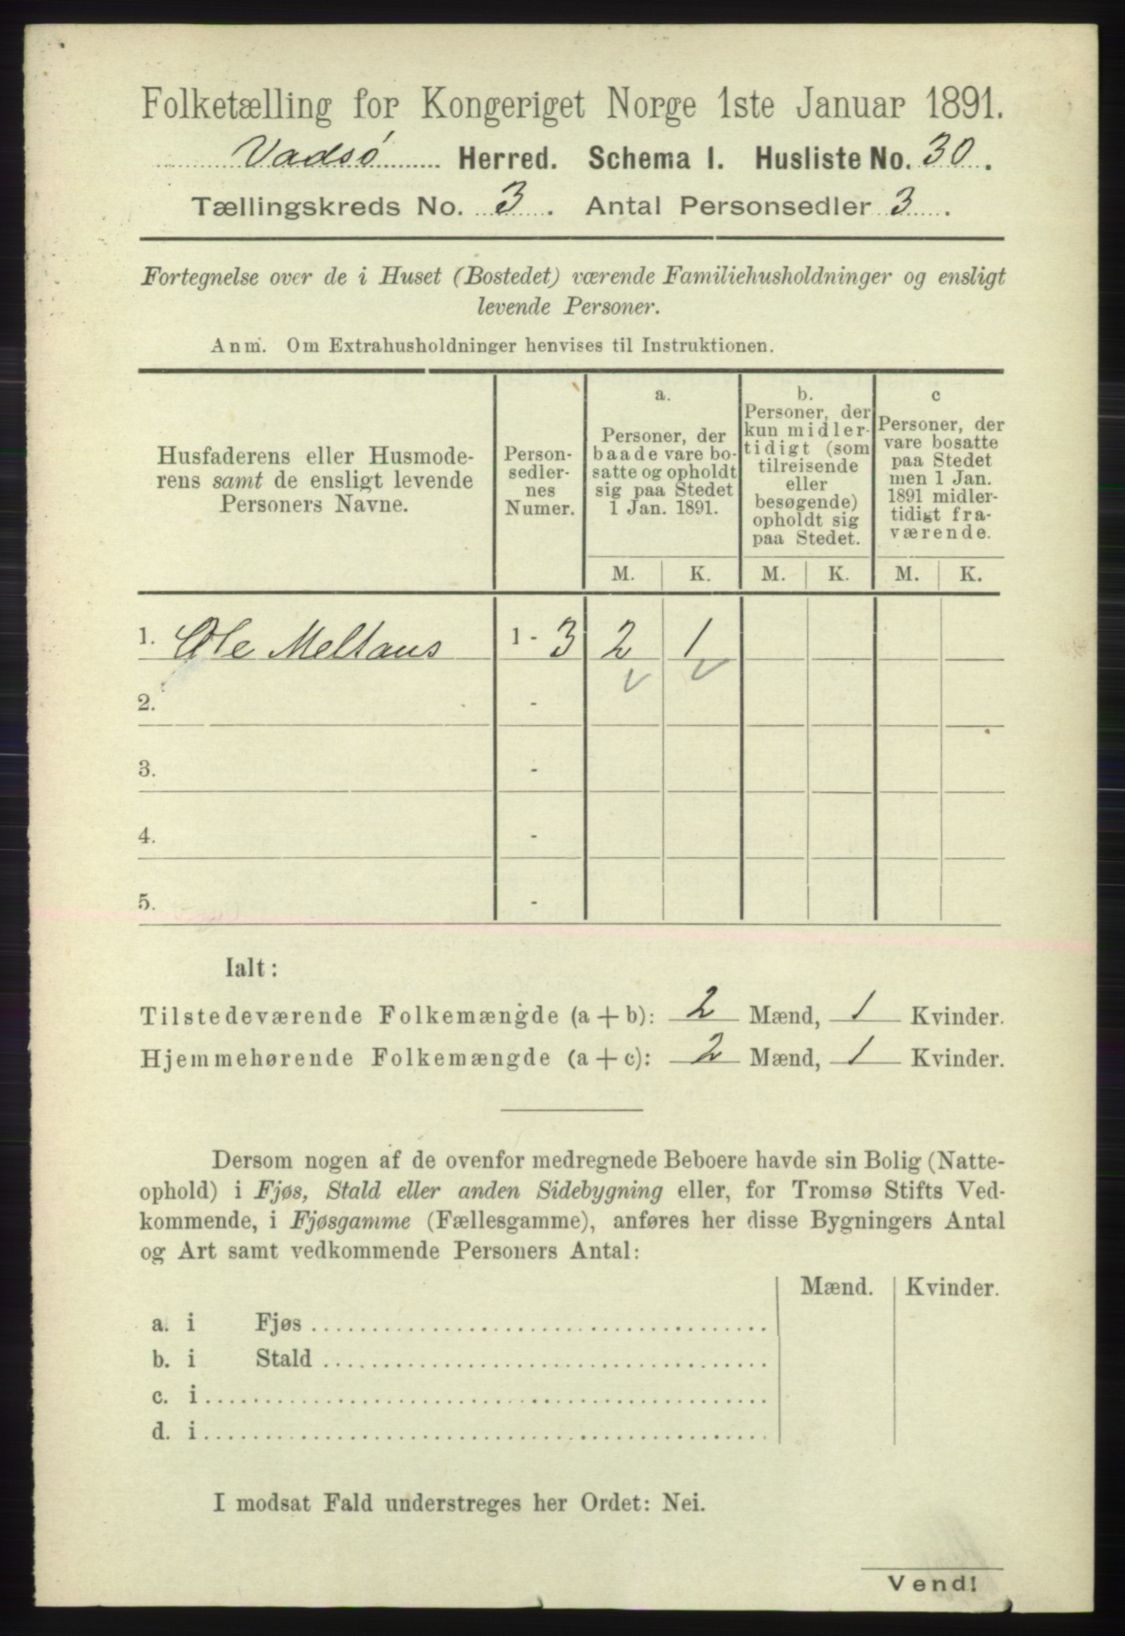 Folketælling for Kongeriget Norge 1ste Januar 1891.
Vadsø Herred. Schema I. Husliste No. 30.
Tællingskreds No. 3. Antal Personsedler 3.
Fortegnelse over de i Huset (Bostedet) værende Familiehusholdninger og ensligt
levende Personer.
Anm. Om Extrahusholdninger henvises til Instruktionen.
Husfaderens eller Husmode-
rens samt de ensligt levende
Personers Navne.
Person-
sedler-
nes
Numer.
a.
Personer, der
baade vare bo-
satte og opholdt
sig paa Stedet
1 Jan. 1891.
b.
Personer, der
kun midler-
tidigt (som
tilreisende
eller
besøgende)
opholdt sig
paa Stedet.
c
Personer, der
vare bosatte
paa Stedet
men 1 Jan.
1891 midler-
tidigt fra-
værende.
M. K. M. K. M. K.
1. Ole Meltaus 1 - 3 2 1
2. -
3. -
4. -
5. -
Ialt:
Tilstedeværende Folkemængde (a + b): 2 Mænd, 1 Kvinder.
Hjemmehørende Folkemængde (a + c): 2 Mænd, 1 Kvinder.
Dersom nogen af de ovenfor medregnede Beboere havde sin Bolig (Natte-
ophold) i Fjøs, Stald eller anden Sidebygning eller, for Tromsø Stifts Ved-
kommende, i Fjøsgamme (Fællesgamme), anføres her disse Bygningers Antal
og Art samt vedkommende Personers Antal:
Mænd. Kvinder.
a. i Fjøs
b. i Stald
c. i
d. i
I modsat Fald understreges her Ordet: Nei.
Vend!